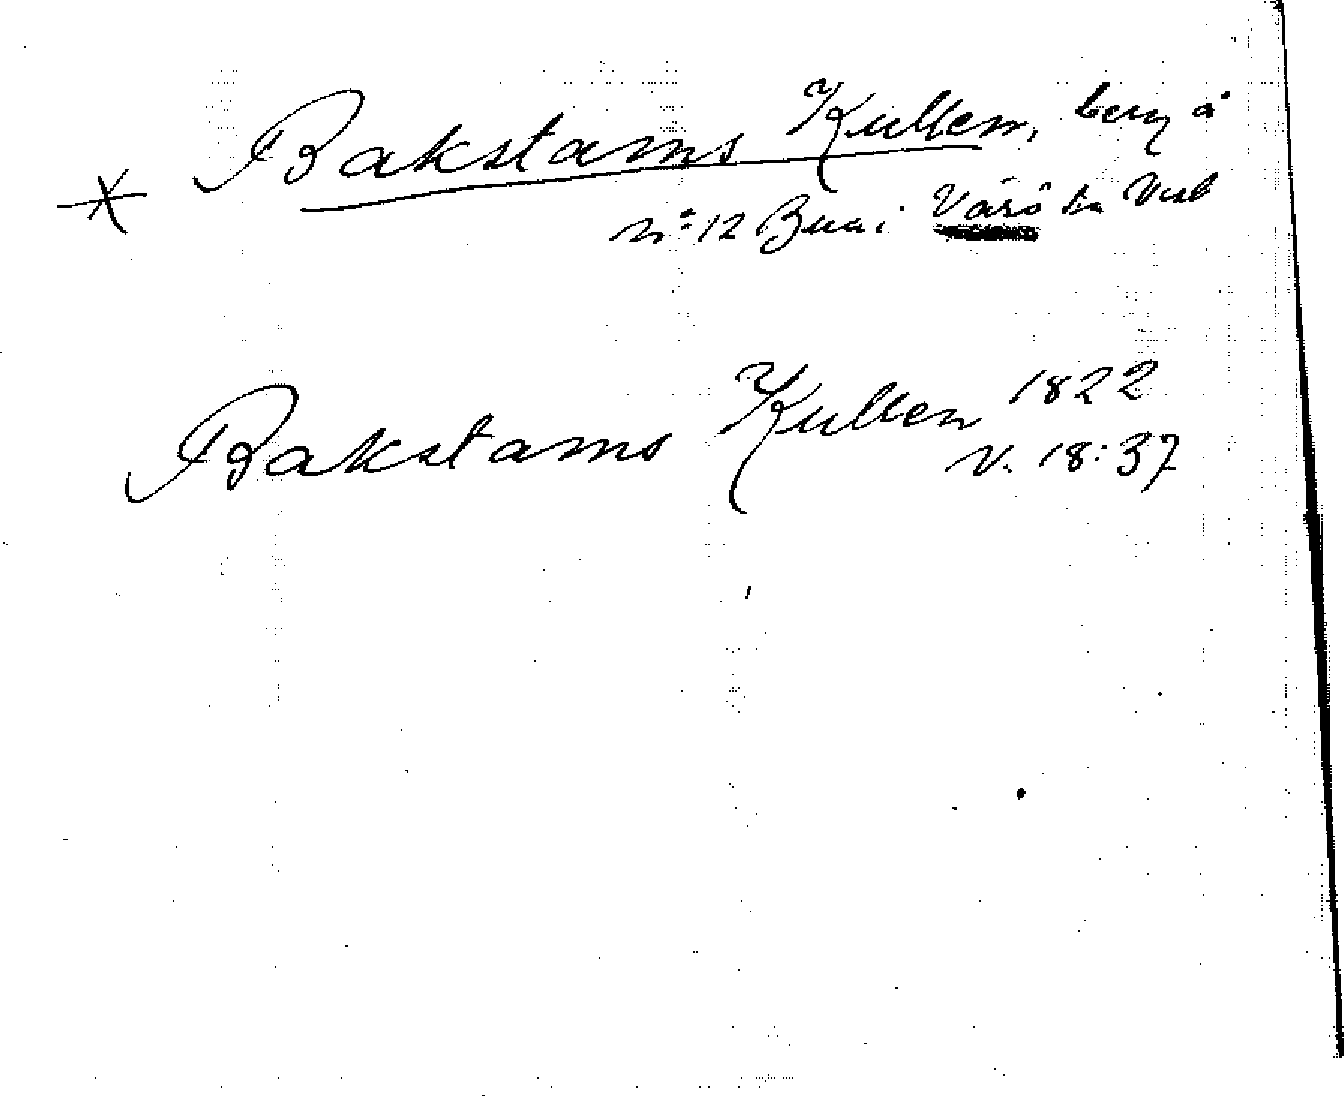 Bakstams Kullen, berg å
No 12 Bua i Värö sn Visl
Bakstams Kullen 1822
V. 18:37